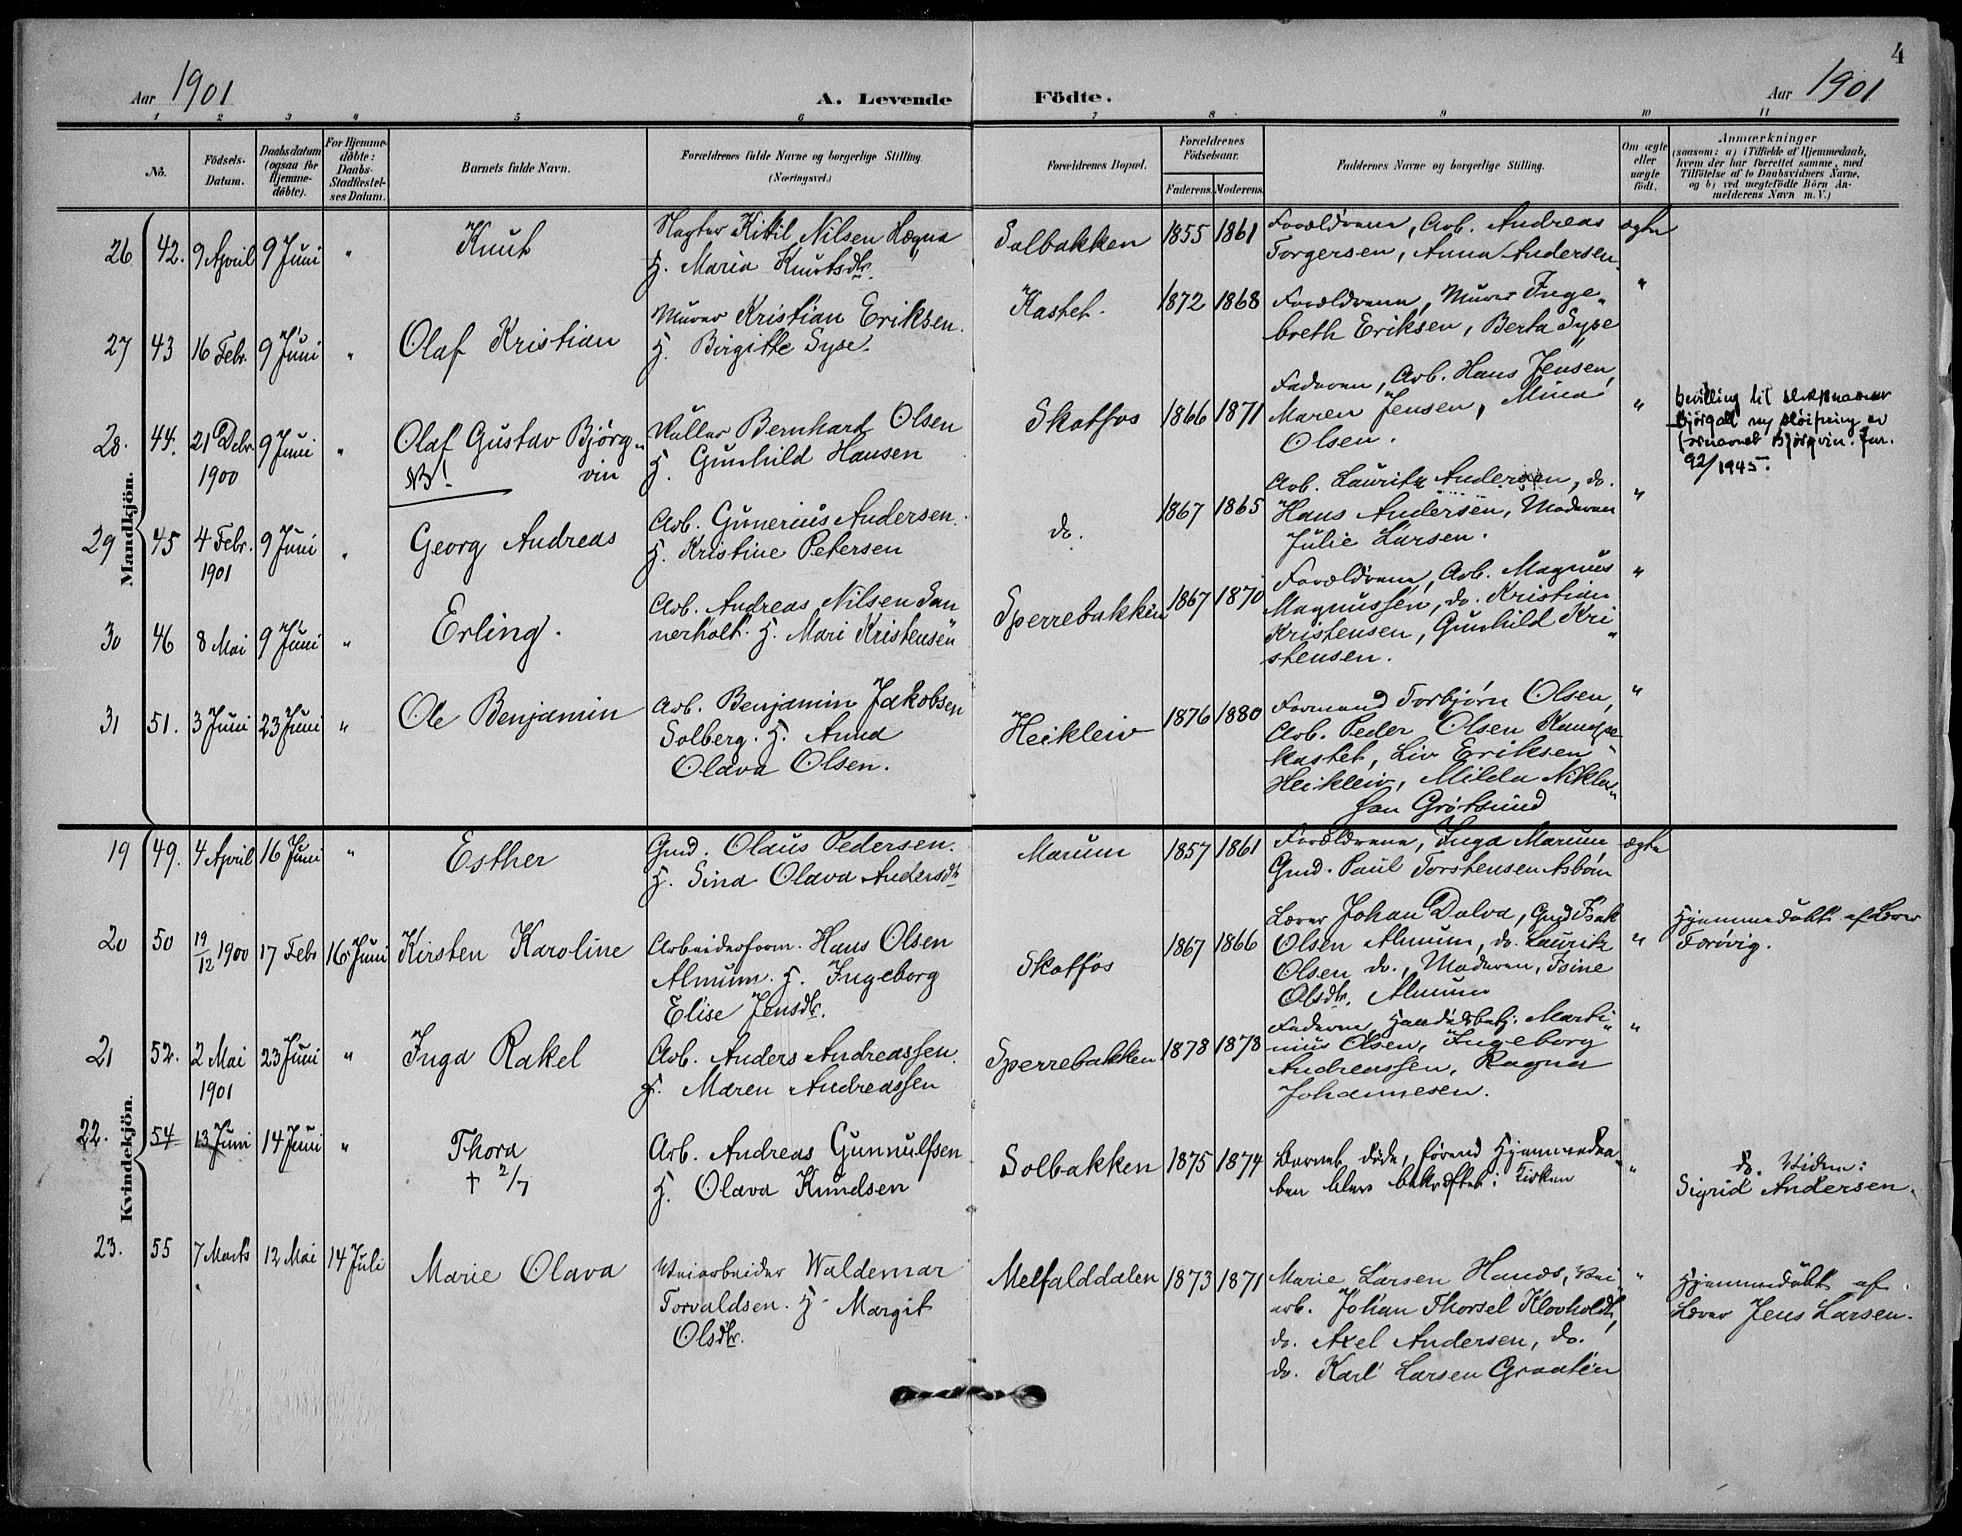 4
Aar 1901 A. Levende Födte. Aar 1901
1 2 3 4 5 6 7 8 9 10 11
No. Födsels-Datum. Daabsdatum (ogsaa for Hjemmedöbte). For Hjemmedöbte: Daabs-Stadfæstelses Datum. Barnets fulde Navn. Forældrenes fulde Navne og borgerlige Stilling. (Næringsvei.) Forældrenes Bopæl. Forældrenes Födselsaar. Faderens. Moderens. Faddernes Navne og borgerlige Stilling. Om ægte eller uægte födt. Anmærkninger (saasom: a) i Tilfælde af Hjemmedaab, hvem der har forrettet samme, med Tilföielse af to Daabsvidners Navne, og b) ved uægtefödte Börn Anmelderens Navn m. V.)
Mandkjön.
26 42. 9 April 9 Juni " Knut
Kittil Nilsen Lægna
H. Maria Knutsdtr.
Solbakken 1855 1861
Forældrene, Arb. Andreas
Torgersen, Anna Andersen.
ægte
27 43 16 Febr. 9 Juni " Olaf Kristian
Murer Kristian Eriksen.
H. Birgitte Syse.
Kastet. 1872 1868
Forældrene, Murer Inge"
breth Eriksen, Berta Syse
"
28. 44. 21 Debr. 1900 9 Juni " Olaf Gustav Björg"
NB! vin
Bernhard Olsen
H. Gunhild Hansen
Skotfos 1866 1871
Faderen, Arb. Hans Jensen,
Maren Jensen, Mina
Olsen.
"
Bevilling til
Björgall ny
fornavnet Björgvin. Jnr.
92/1945.
29 45 4 Febr. 1901 9 Juni " Georg Andreas
Arb. Gunerius Andersen.
H. Kristine Petersen
do. 1867 1865
Arb. Lauritz Andersen, do.
Hans Andersen, Moderen
Julie Larsen.
"
30 46 8 Mai 9 Juni " Erling.
Arb. Andreas Nilsen San
nerholt. H. Mari Kristensen
Sperrebakken 1867 1870
Forældrene, Arb. Magnus
Magnussen, do. Kristian
Kristensen, Gunhild Kri"
stensen.
"
31 51. 3 Juni 23 Juni " Ole Benjamin
Arb. Benjamin Jakobsen
Solberg. H. Anna
Olava Olsen.
Heikleiv 1876 1880
Formand Torbjørn Olsen,
Arb. Peder Olsen
kastet, Liv Eriksen
Heikleiv, Milda Nikla"
sen Grötsund
"
Kvindekjön.
19 49. 4 April 16 Juni " Esther
Gmd. Olaus Pedersen.
H. Sina Olava Andersdtr
Marum 1857 1861
Forældrene, Inga Marum
Gmd. Paul Torstensen Asbom
ægte
20 50 19/12 1900 17 Febr 16 Juni Kirsten Karoline
Arbeiderform. Hans Olsen
Almum. H. Ingeborg
Elise Jensdtr.
Skotfos 1867 1866
Lærer Johan Dalva, Gmd Isak
Olsen Almum, do. Lauritz
Olsen do., Moderen, Isine
Olsdtr. Almum
"
Hjemmedöbt af Lærer
Forövig.
21 52. 2 Mai 1901 23 Juni " Inga Rakel
Arb. Anders Andreassen.
H. Maren Andreassen
Sperrebakken 1878 1878
Faderen, Handelsbetj. Marti"
nius Olsen, Ingeborg
Andreassen, Ragna
Johannesen.
"
22. 54 13 Juni 14 Juni " Thora
† 2/7
Arb. Andreas Gunnulfsen
H. Olava Knudsen
Solbakken 1875 1874
Barnet döde, förend Hjemmedaa"
ben blev bekræftet i Kirken
"
do. Vidne:
Sigrid Andersen.
23. 55 7 Marts 12 Mai 14 Juli Marie Olava
Veiarbeider Waldemar
Torvaldsen. H. Margit
Olsdtr.
Melfalddalen 1873 1871
Marie Larsen Hanaes, Vei
arb. Johan Thorsel Klovholdt,
do. Axel Andersen, do.
do. Karl Larsen Graaten
"
Hjemmedöbt af
Lærer Jens Larsen.